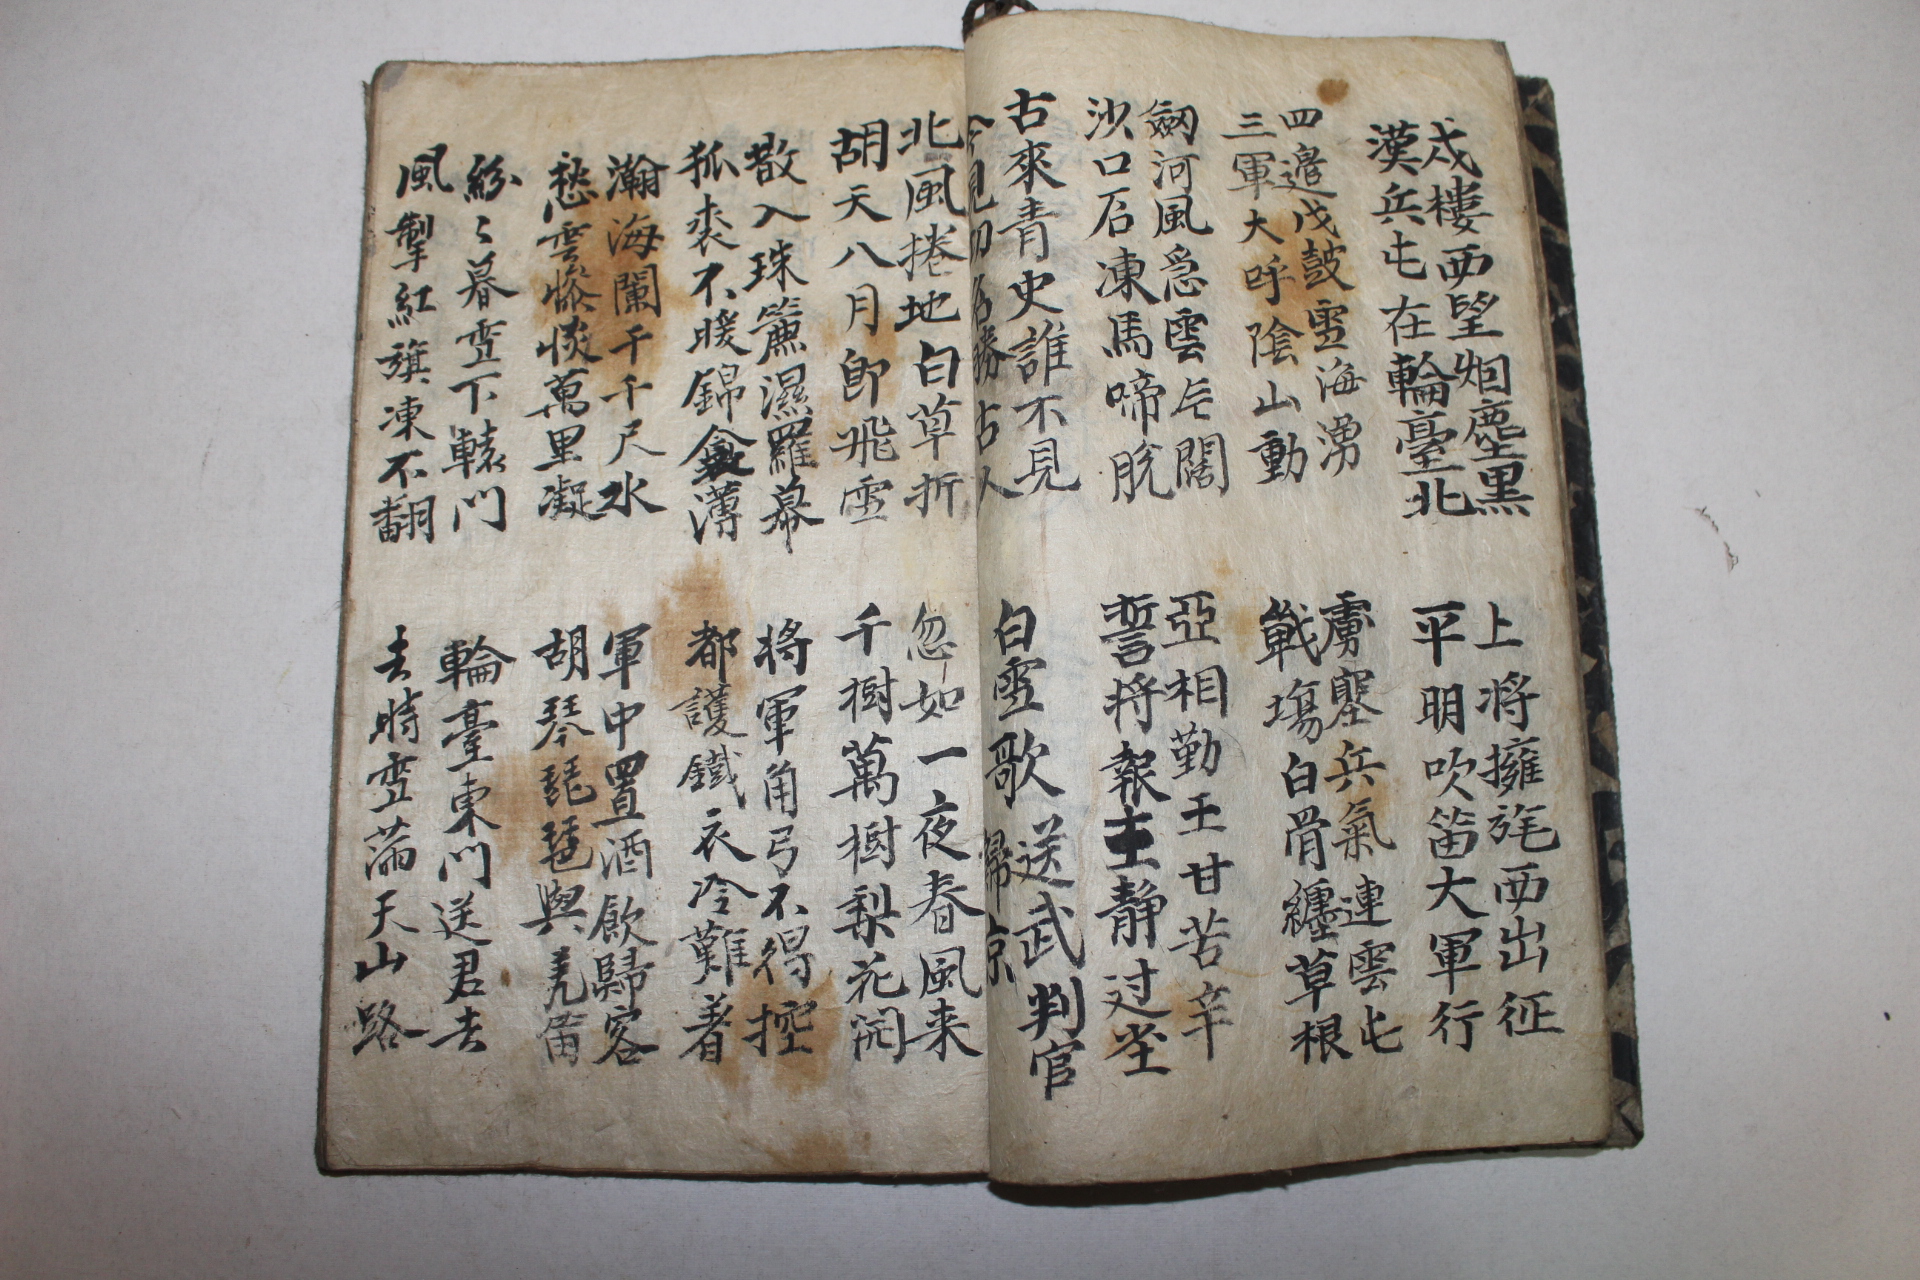 戍樓西望烟塵黑
漢兵屯在輪臺北
上將擁旄西出征
平明吹笛大軍行
四邉伐鼓雪海湧
三軍大呼陰山動
虜塞兵氣連雲屯
戰塲白骨纏草根
劒河風急雲片闊
沙口石凍馬啼脫
亞相勤王甘苦辛
誓將報主靜过坒
古來青史誰不見
今見功名勝古人
白雪歌送武判官
歸京
北風捲地白草折
胡天八月卽飛雪
忽如一夜春風来
千樹萬樹梨花開
散入珠簾濕羅幕
狐裘不暖錦衾薄
將軍角弓不得控
都護鐵衣冷難着
瀚海闌干千尺水
愁雲慘惔萬里凝
軍中置酒飮歸客
胡琴琵琶與羌笛
紛〻暮雪下轅門
風掣紅旗凍不翻
輪臺東門送君去
去時雪滿天山路